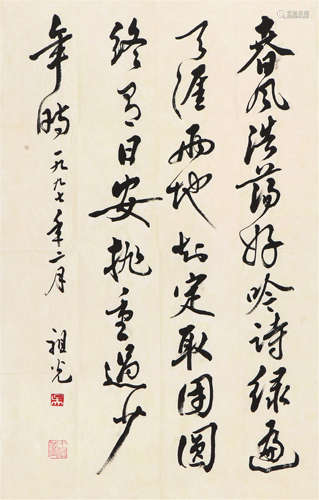 春风浩荡好吟诗绿遍
天涯两地知定取团圆
终有日安排重过少
年时 一九九七年二月 祖光